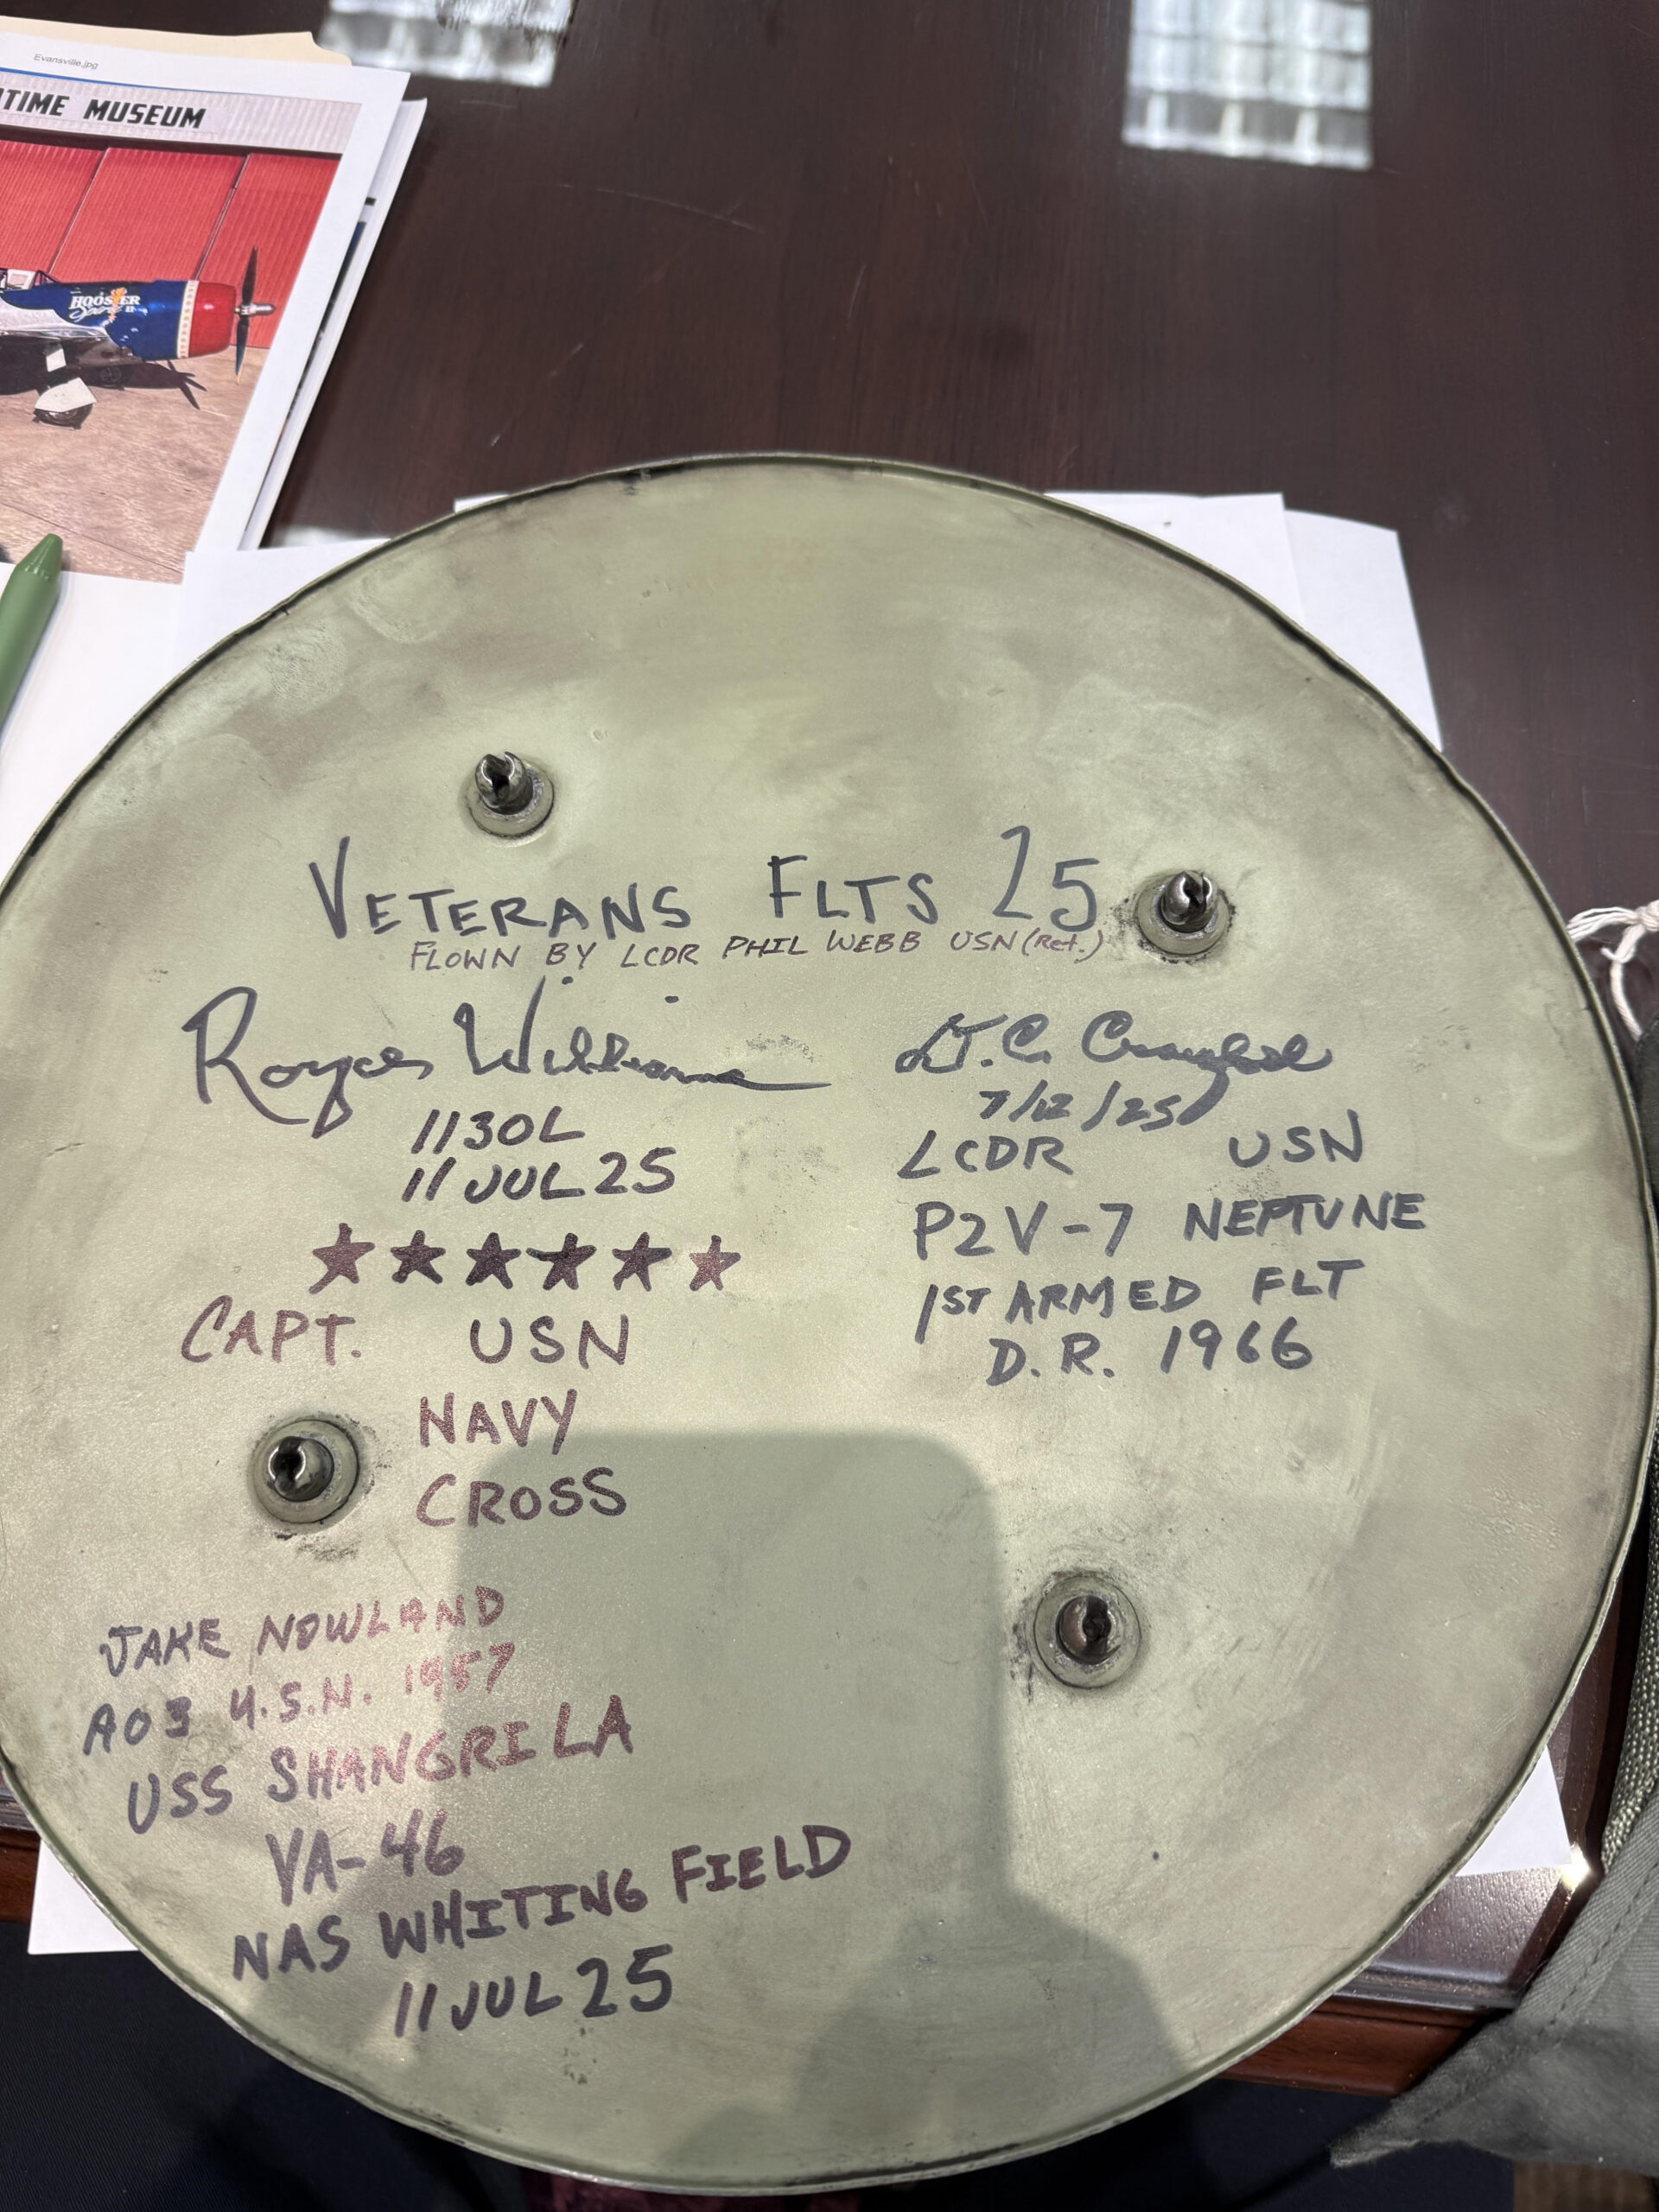 Evansville.jpg
TIME MUSEUM
HOOSIER
Spirit II
VETERANS FLTS 25
FLOWN BY LCDR PHIL WEBB USN (Ret.)
Royce Williams
1130L
11 JUL 25
★★★★★★
CAPT. USN
NAVY
CROSS
D.C.
7/12/25
LCDR USN
P2V-7 NEPTUNE
1ST ARMED FLT
D.R. 1966
JAKE NOWLAND
AO3 U.S.N. 1957
USS SHANGRI LA
VA-46
NAS WHITING FIELD
11 JUL 25